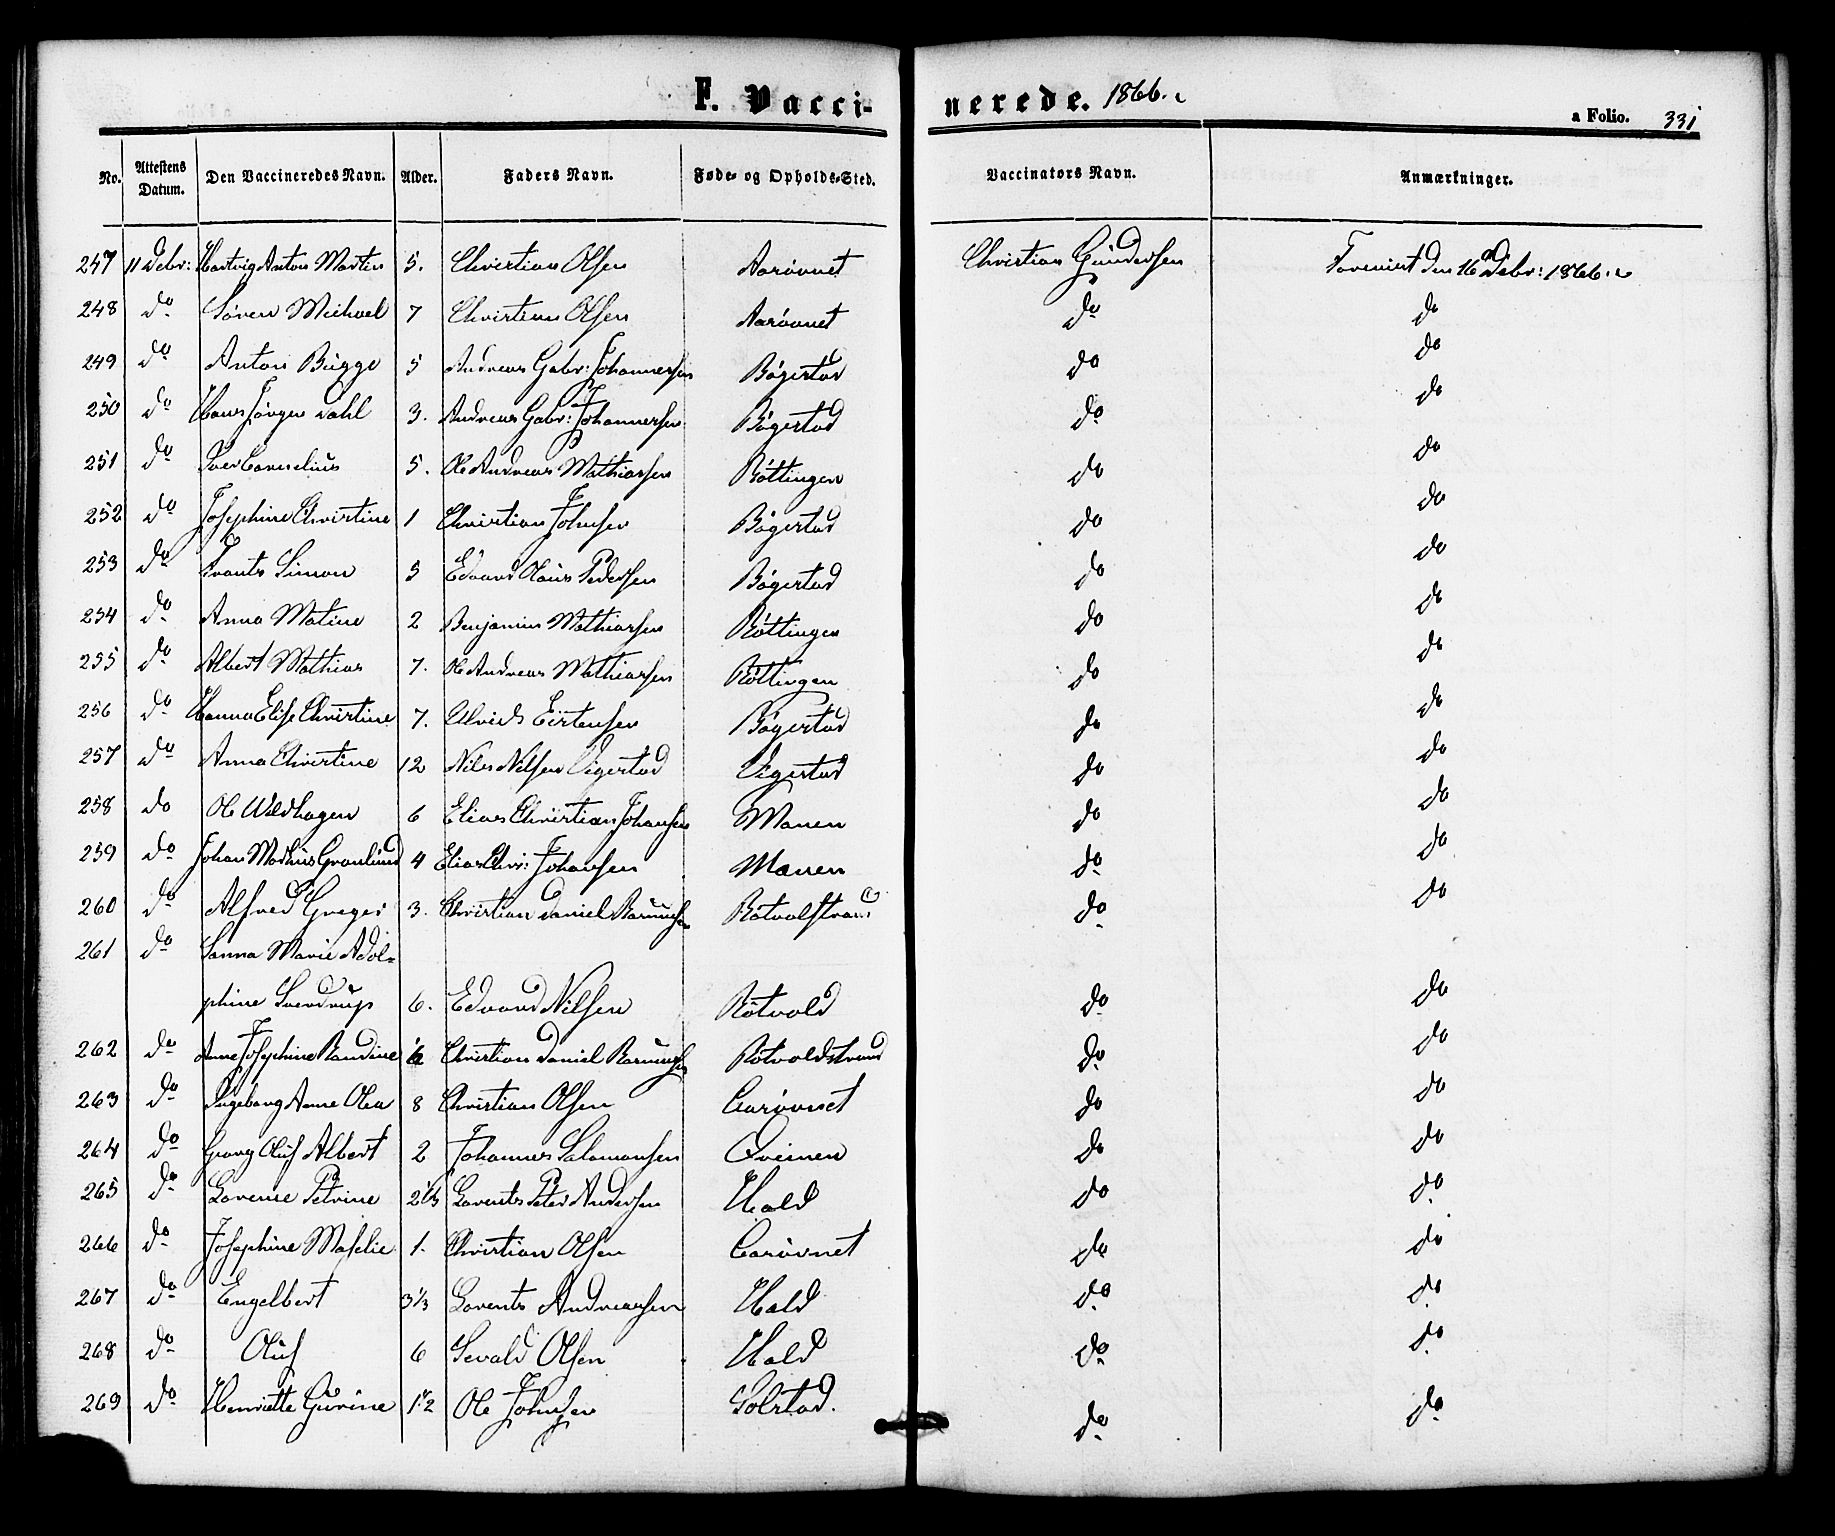 F. Vaccinerede. 1866.
a Folio. 331
No. Attestens Datum. Den Vaccineredes Navn. Alder. Faders Navn. Føde- og Opholds-Sted. Vaccinators Navn. Anmærkninger.
247 11 Debr: Hartvig Anton Martin 5. Christian Olsen Aarøvnet Christian Gundersen Foreviist den 16 Debr: 1866.
248 do Søren Michael 7 Christian Olsen Aarøvnet do do
249 do Anton Bugge 5 Andreas Gabr: Johannessen Bøgestad do do
250 do Hans Jørgen Dahl 3. Andreas Gabr: Johannessen Bøgestad do do
251 do Iver Cornelius 5. Ole Andreas Mathiassen Røttingen do do
252 do Josephine Christine 1 Christian Johnsen Bøgestad do do
253 do Frants Simon 5 Edvard Claus Pedersen Bøgestad do do
254 do Anna Matine 2 Benjamin Mathiassen Røttingen do do
255 do Albert Mathias 7. Ole Andreas Mathiassen Røttingen do do
256 do Hanna Elise Christine 7. Ulrich Eistensen Bøgestad do do
257 do Anna Christine 12 Nils Nilsen Vigestad Vigestad do do
258 do Ole Wildhagen 6 Elias Christian Johansen Manen do do
259 do Johan Mathias Grønlund 4 Elias Chr: Johansen Manen do do
260 do Alfred Greger 3. Christian Daniel Rasmussen Røtvolstrand do do
261 do Sanna Marie Adol-
phine Sverdrup 6. Edvard Nilsen Røtvold do do
262 do Anne Josephine Randine Christian Daniel Rasmussen Røtvoldstrand do do
263 do Ingeborg Anne Olea 8 Christian Olsen Aarøvnet do do
264 do Georg Oluf Albert 2 Johannes Salamonsen Qveinen do do
265 do Lorense Petrine 2 1/3 Lorents Peter Andersen Hald do do
266 do Josephine Maselie 1. Christian Olsen Aarøvnet do do
267 do Engelbert 3 1/3 Lorents Andreassen Hald do do
268 do Oluf 6 Sevald Olsen Hald do do
269 do Henriette Gurine 1 1/2 Ole Johnsen Solstad. do do